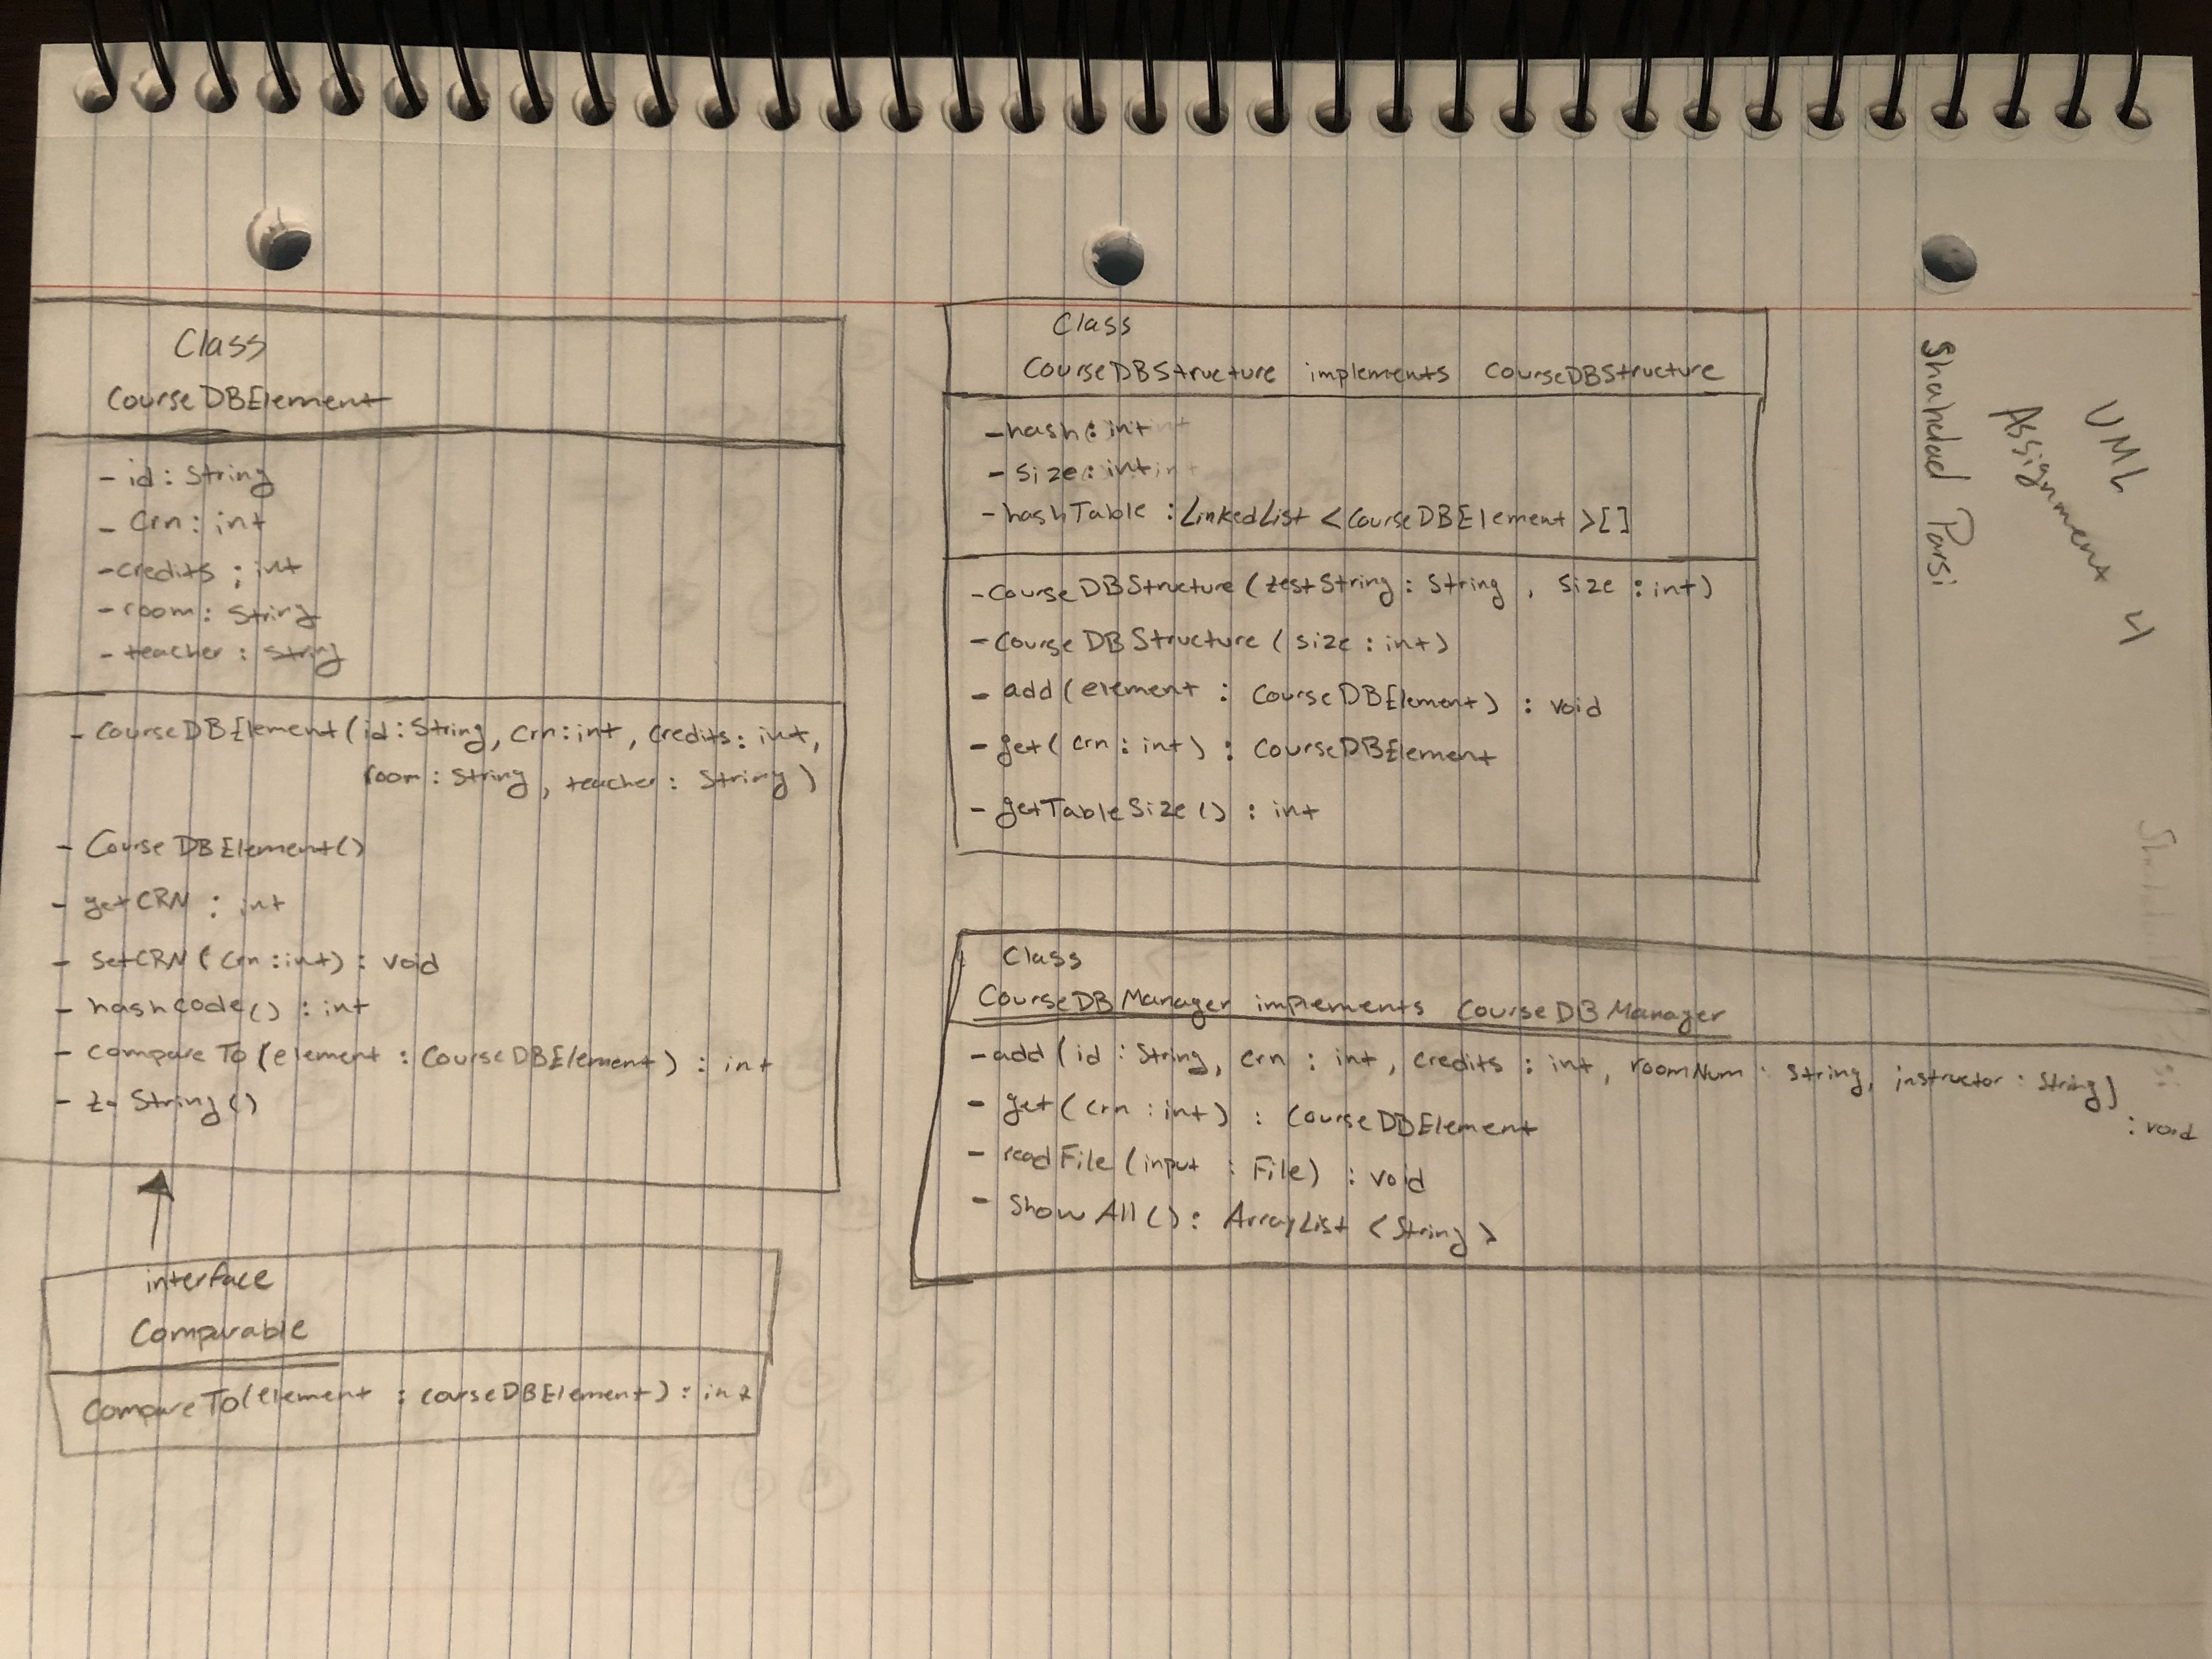 Class
CourseDBElement
- id : String
- Crn : int
- credits : int
- room : String
- teacher : String
- CourseDBElement (id : String, Crn : int, credits : int,
room : String, teacher : String)
- CourseDBElement()
- getCRN : int
- setCRN (crn : int) : void
- hashcode() : int
- compareTo (element : CourseDBElement) : int
- to String()
interface
Comparable
CompareTo(element : CorseDBElement) : int
Class
CourseDBStructure implements CourseDBStructure
- hash : int
- size : int
- hashTable : LinkedList <CourseDBElement>[]
- CourseDBStructure (testString : String, size : int)
- CourseDBStructure (size : int)
- add (element : CourseDBElement) : void
- get (crn : int) : CourseDBElement
- getTableSize() : int
Class
CourseDBManager implements CourseDBManager
- add (id : String, crn : int, credits : int, roomNum : String, instructor : String) : void
- get (crn : int) : CourseDBElement
- readFile (input : File) : void
- Show All () : ArrayList <String>
Shahdad Parsi
Assignment 4
UML